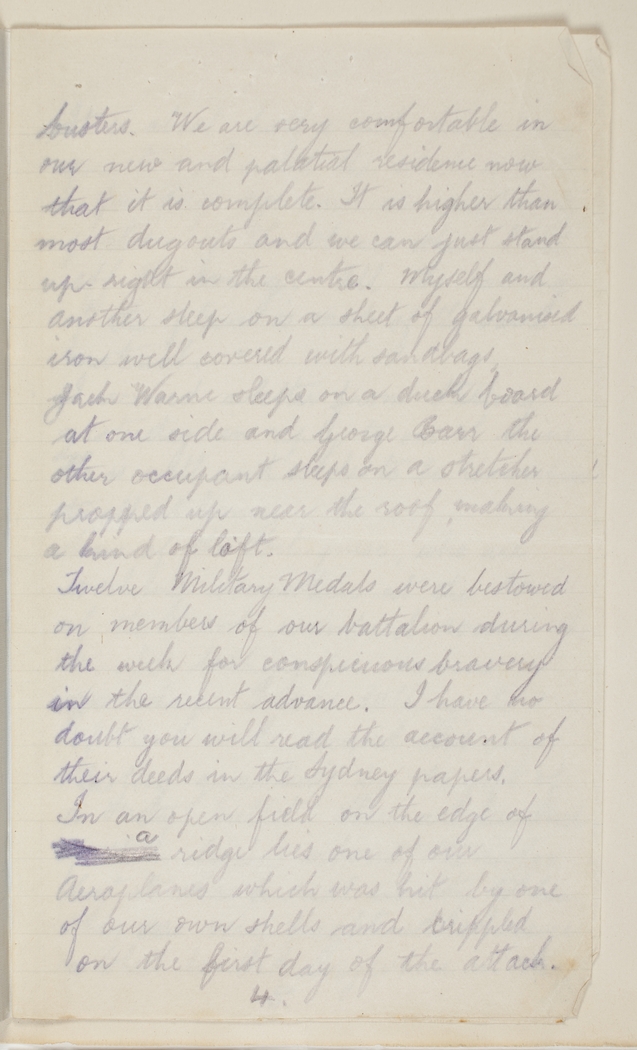 busters. We are very comfortable in
our new and palatial residence now
that it is complete. It is higher than
most dugouts and we can just stand
up-right in the centre. Myself and
another sleep on a sheet of galvanised
iron well covered with sandbags.
Jack Warne sleeps on a duck board
at one side and George Barr the
other occupant sleeps on a stretcher
propped up near the roof, making
a kind of loft.
Twelve Military Medals were bestowed
on members of our battalion during
the week for conspicuous bravery
in the recent advance. I have no
doubt you will read the account of
their deeds in the Sydney papers.
In an open field on the edge of
a ridge lies one of our
Aeroplanes which was hit by one
of our own shells and crippled
on the first day of the attack.
4.